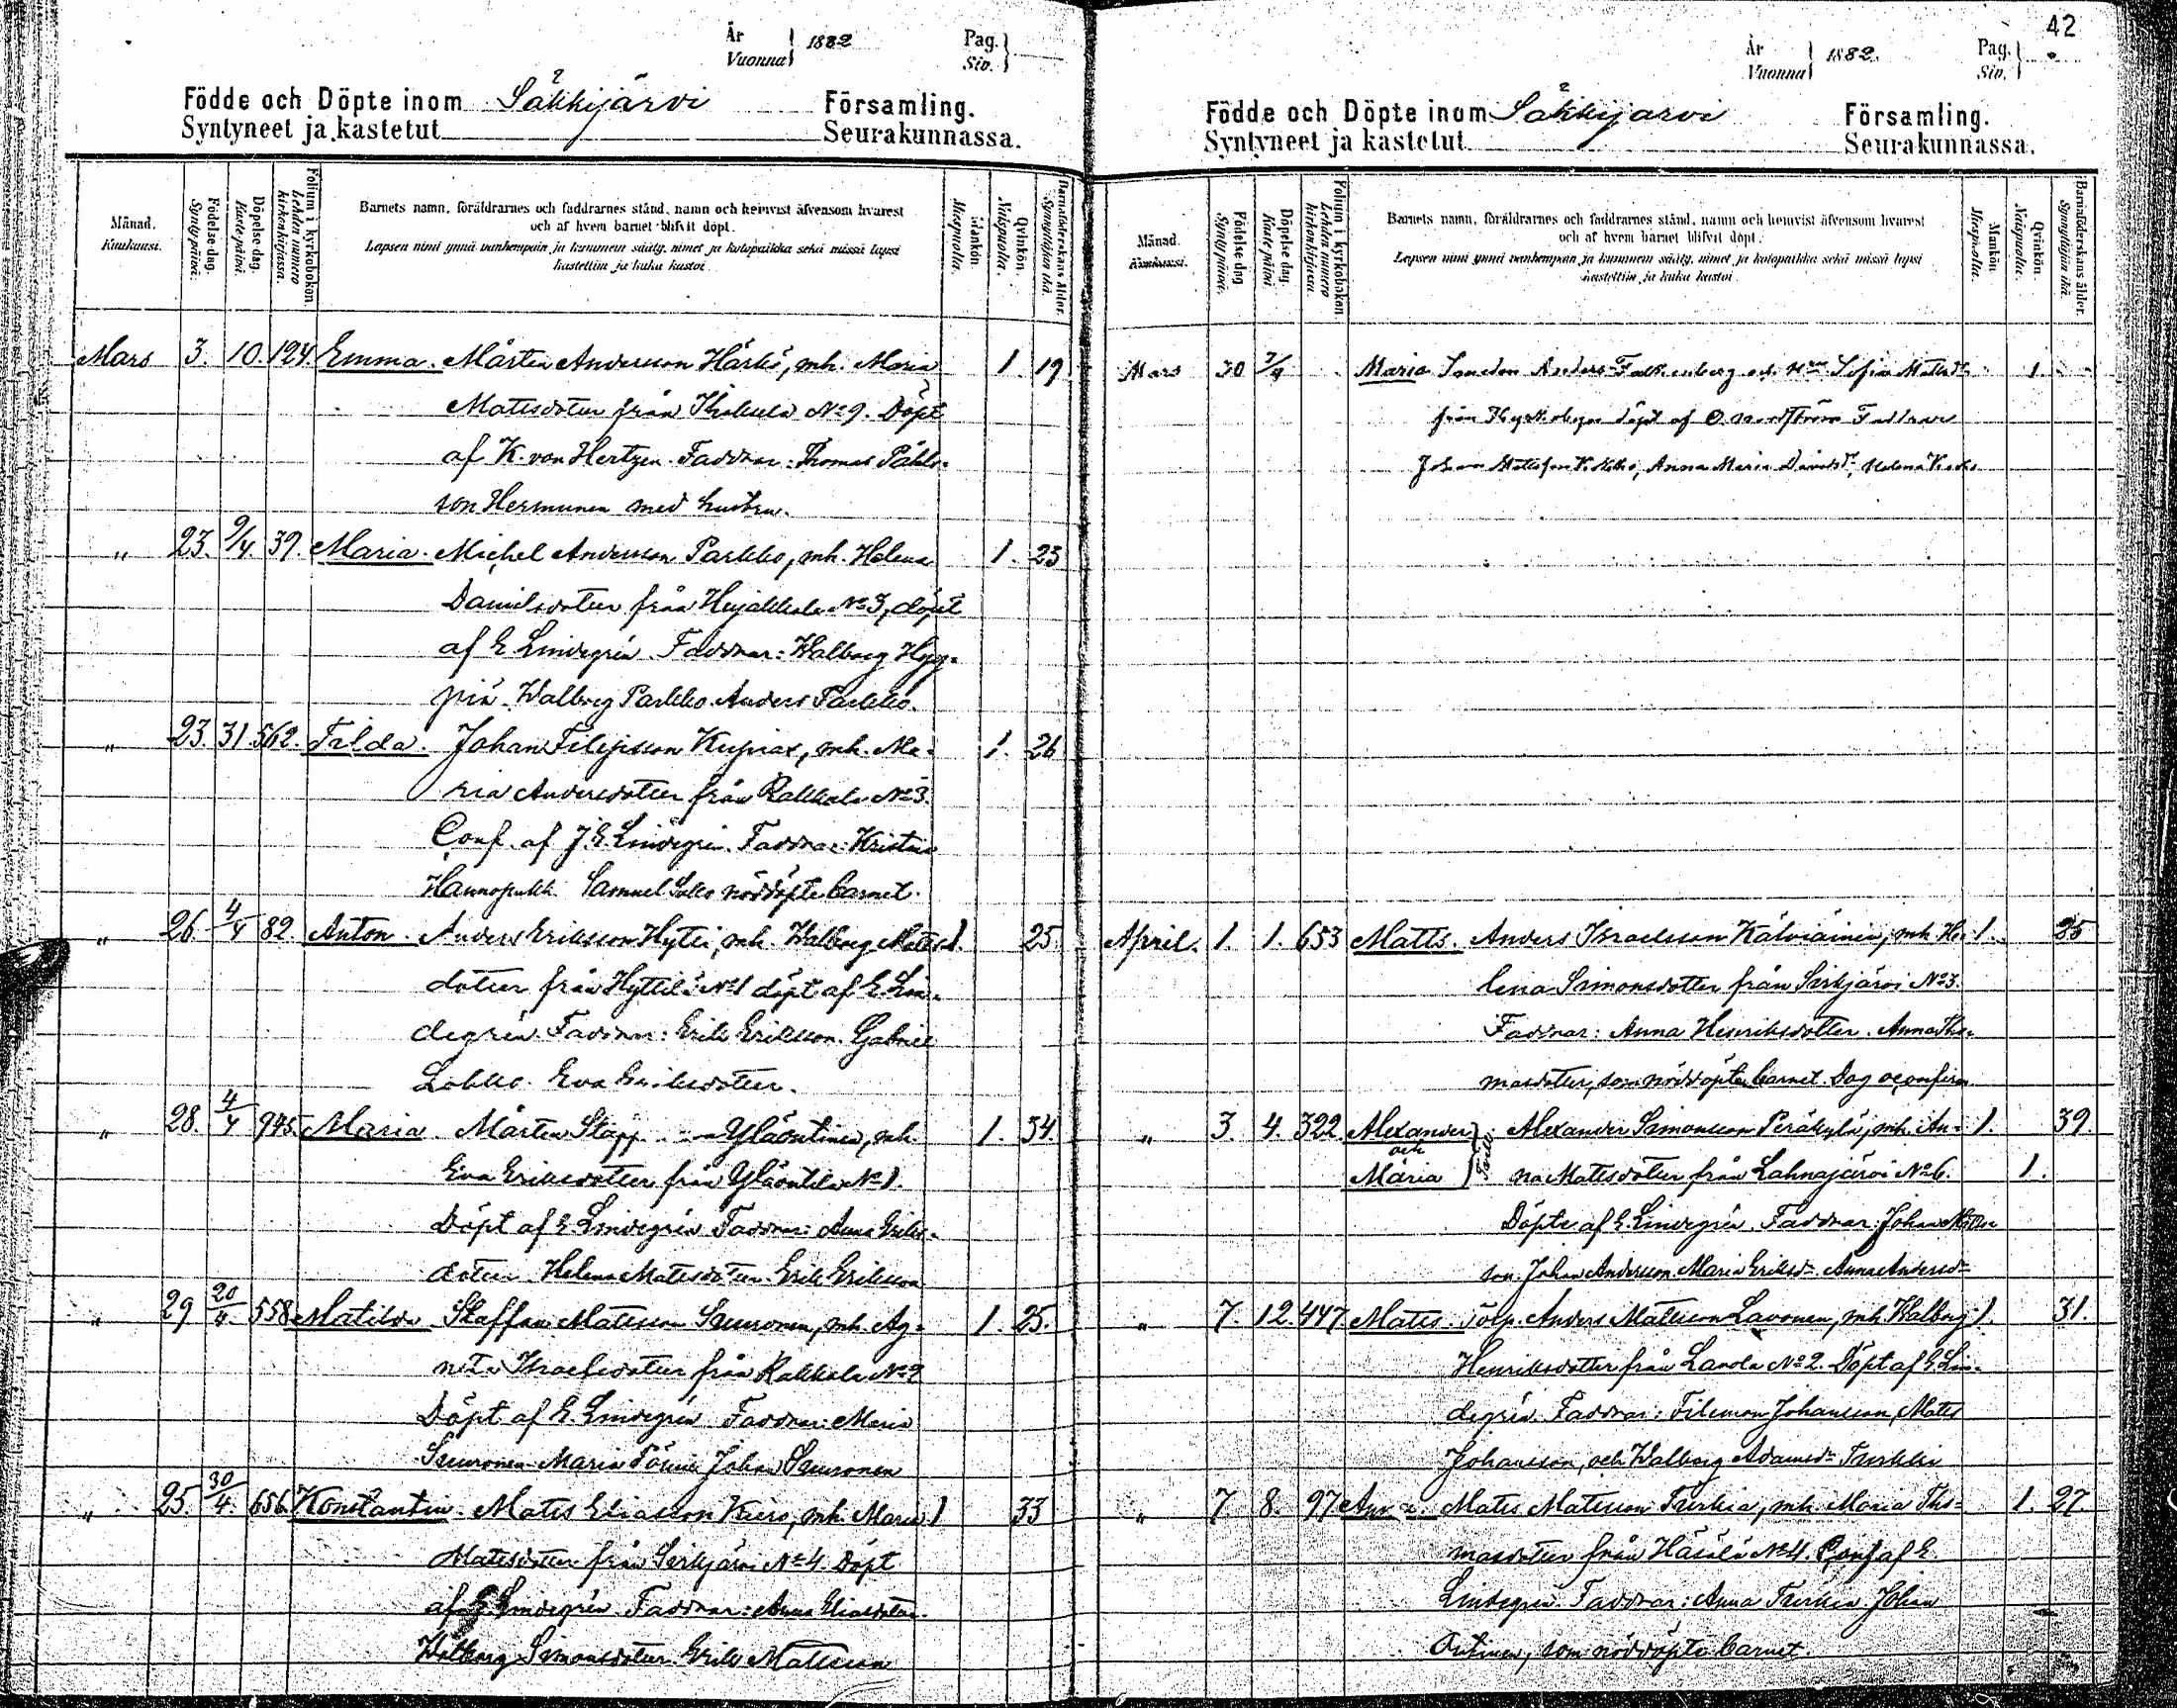 År
Vuonna
1882
Pag.
Siv.
Födde och Döpte inom Säkkijärvi Församling.
Syntyneet ja kastetut Seurakunnassa.
Månad.
Kuukausi.
Födelse dag.
Syntypäivä.
Döpelse dag.
Kastepäivä.
Folium i kyrkoboken.
Lehden numero
kirkonkirjassa.
Barnets namn, föräldrarnes och faddrarnes stånd, namn och hemvist äfvensom hvarest
och af hvem barnet blifvit döpt.
Lapsen nimi ynnä vanhempain ja kummein sääty, nimet ja kotopaikka sekä missä lapsi
kastettiin ja kuka kastoi.
Mankön.
Miespuolia.
Qvinkön.
Naispuolia.
Barnaföderskans ålder.
Synnyttäjän ikä.
Mars 3. 10. 124. Emma. Mårten Andersson Härkö, mh. Maria 1 19
Mattsdotter från Ihakula No 9. Döpt
af K. von Hertzen. Faddrar: Thomas Påhls-
son Hermunen med hustru.
" 23. 9/4 39. Maria. Michel Andersson Parkko, mh. Helena 1. 23
Danielsdotter från Hujakkala No 3, döpt
af E Lindegrén. Faddrar: Walborg Hyy-
piä. Walborg Parkko. Anders Parkko.
" 23. 31 562. Tilda. Johan Filipsson Kupiax, mh. Ma- 1. 26
ria Andersdotter från Rakkala No 3.
Conf. af J. E Lindegrén. Faddrar: Kristina
Hannopukk Samuel Sakko nöddöpte barnet.
" 26. 4/4 82. Anton. Anders Eriksson Hyti, mh. Walborg Matts- 1. 25
dotter från Hyttilä No 1 döpt af E Lin-
degrén. Faddrar: Erik Eriksson. Gabriel
Lokko. Eva Eriksdotter.
" 28. 4/4 945. Maria. Mårten Yläoutinen, mh. 1. 34.
Eva Eriksdotter från Yläoutila No 1.
Döpt af E. Lindegrén Faddrar: Anna Eriks-
dotter. Helena Mattsdotter Erik Eriksson
" 29 20/4. 558 Matilda Staffan Mattsson Suuronen, mh. Ag- 1. 25.
neta Israelsdotter från Rakkala No 2
Döpt af E. Lindegrén Faddrar: Maria
Suuronen Maria Pönni Johan Suuronen
" 25. 30/4. 656. Konstantin. Matts Eliasson Kiero, mh. Maria 1 33
Mattsdotter från Sirkjärvi No 4. Döpt
af E. Lindegrén Faddrar: Anna Eliasdotter.
Walborg Simonsdotter. Erik Mattsson
42
År
Vuonna
1882.
Pag.
Siv.
Födde och Döpte inom Säkkijärvi Församling.
Syntyneet ja kastetut Seurakunnassa.
Månad.
Kuukausi.
Födelse dag
Syntypäivä.
Döpelse dag.
Kastepäivä.
Folium i kyrkoboken.
Lehden numero
kirkonkirjassa.
Barnets namn, föräldrarnes och faddrarnes stånd, namn och hemvist äfvensom hvarest
och af hvem barnet blifvit döpt.
Lapsen nimi ynnä vanhempain ja kummein sääty, nimet ja kotopaikka sekä missä lapsi
kastettiin ja kuka kastoi.
Mankön.
Miespuolia.
Qvinkön.
Naispuolia.
Barnaföderskans ålder.
Synnyttäjän ikä.
Mars 30 7/4 Maria Anders Falkenberg och Sofia Mattsdr 1.
från Kyrkobyn döpt af O. Nordström Faddrar
Johan Mattsson Anna Maria Davidsdr, Helena
April. 1. 1. 653 Matts. Anders Israelsson Kälviäinen, mh. He- 1. 25
lena Simonsdotter från Sirkjärvi No 3.
Faddrar: Anna Henriksdotter. Anna Tho-
masdotter, som nöddöpte barnet. Dog oconfirm
" 3. 4. 322. Alexander Alexander Simonsson Peräkylä, mh. An- 1. 39.
och
Maria na Mattsdotter från Lahnajärvi No 6. 1.
Döpte af E. Lindegrén. Faddrar: Johan
son. Johan Andersson. Maria Eriksdr Anna Andersdr
" 7. 12. 447 Matts. Anders Mattsson Lavonen, mh. Walborg 1. 31.
Henriksdotter från Lavola No 2. Döpt af E Lin-
degrén. Faddrar: Filemon Johansson, Matts
Johansson, och Walborg Adamsdr Turkki
" 7. 8. 97 Anna. Matts Mattsson Turkia, mh. Maria Tho- 1. 27
masdotter från Häsälä No 4. Conf af E
Lindegrén. Faddrar: Anna Turkia. Johan
Outinen, som nöddöpte barnet.